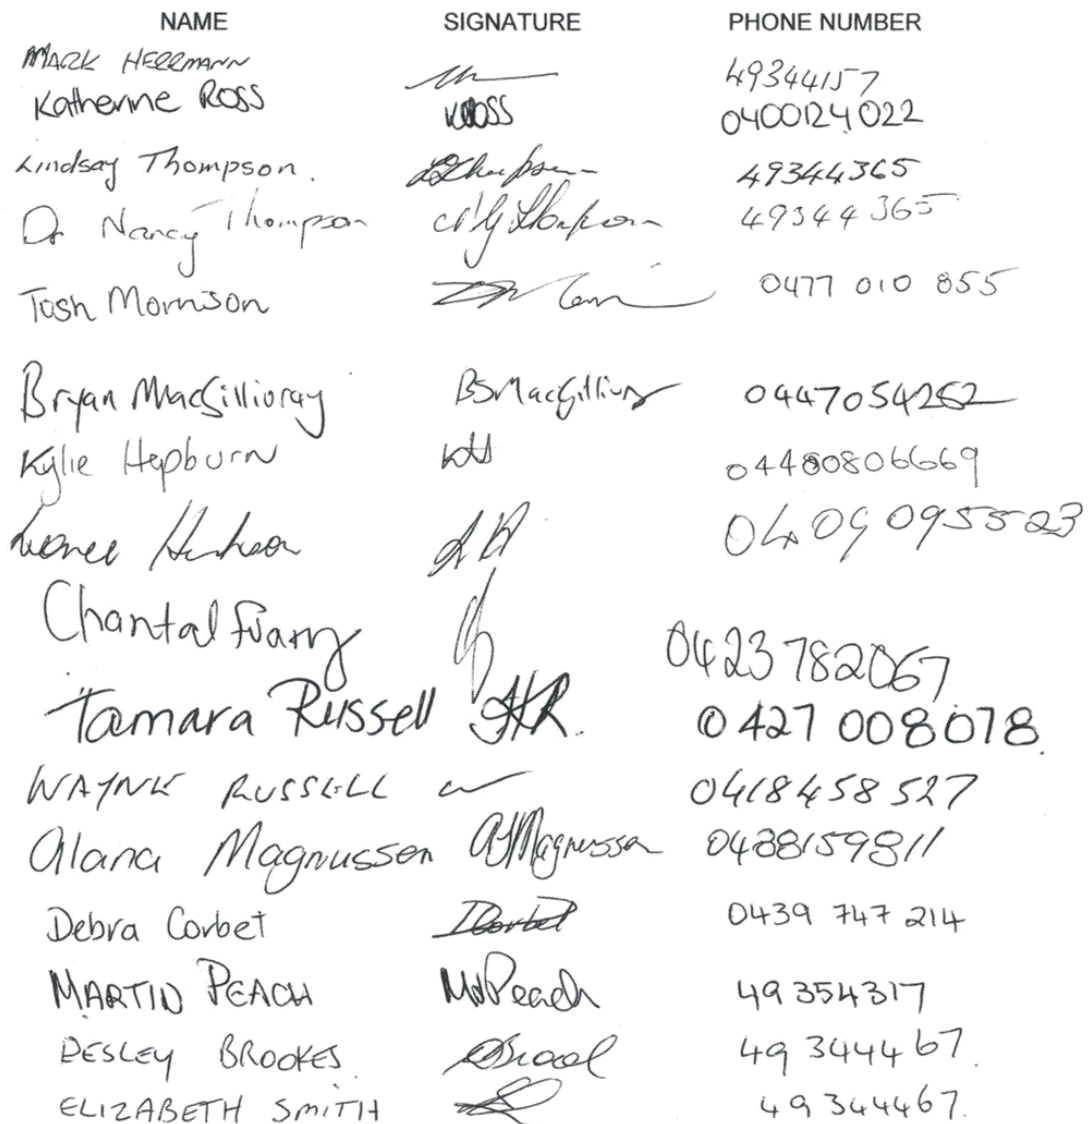 NAME SIGNATURE PHONE NUMBER
MARK HERRMANN 49344157
Katherine ROSS KROSS 0400124022
Lindsay Thompson. 49344365
Dr Nancy Thompson 49344365
Tash Morrison 0477 010 855
Bryan MacGillivray BSMacGillivray 0447054262
Kylie Hepburn KH 04480806669
0409095523
Chantal 0423782067
Tamara Russell 0427 008078
WAYNE RUSSELL 0418458527
Alana Magnussen AJMagnussen 0438159811
Debra Corbet DCorbet 0439 747 214
MARTIN PEACH Peach 49354317
DESLEY BROOKES 49 344467.
ELIZABETH SMITH 49 344467.